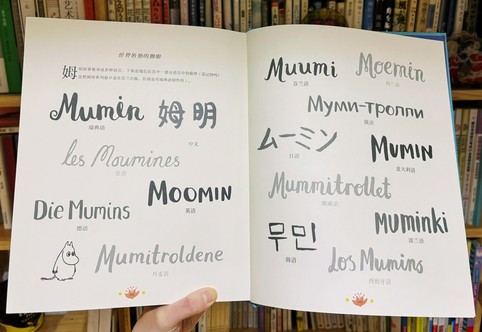 世界各地的姆明
Mumin
瑞典语
姆明
中文
les Moumines
法语
MOOMIN
英语
Die Mumins
德语
Mumitroldene
丹麦语
Muumi
芬兰语
Moemin
荷兰语
Муми-тролли
俄语
ムーミン
日语
MUMIN
意大利语
Mummitrollet
挪威语
muminki
波兰语
무민
韩语
Los Mumins
西班牙语